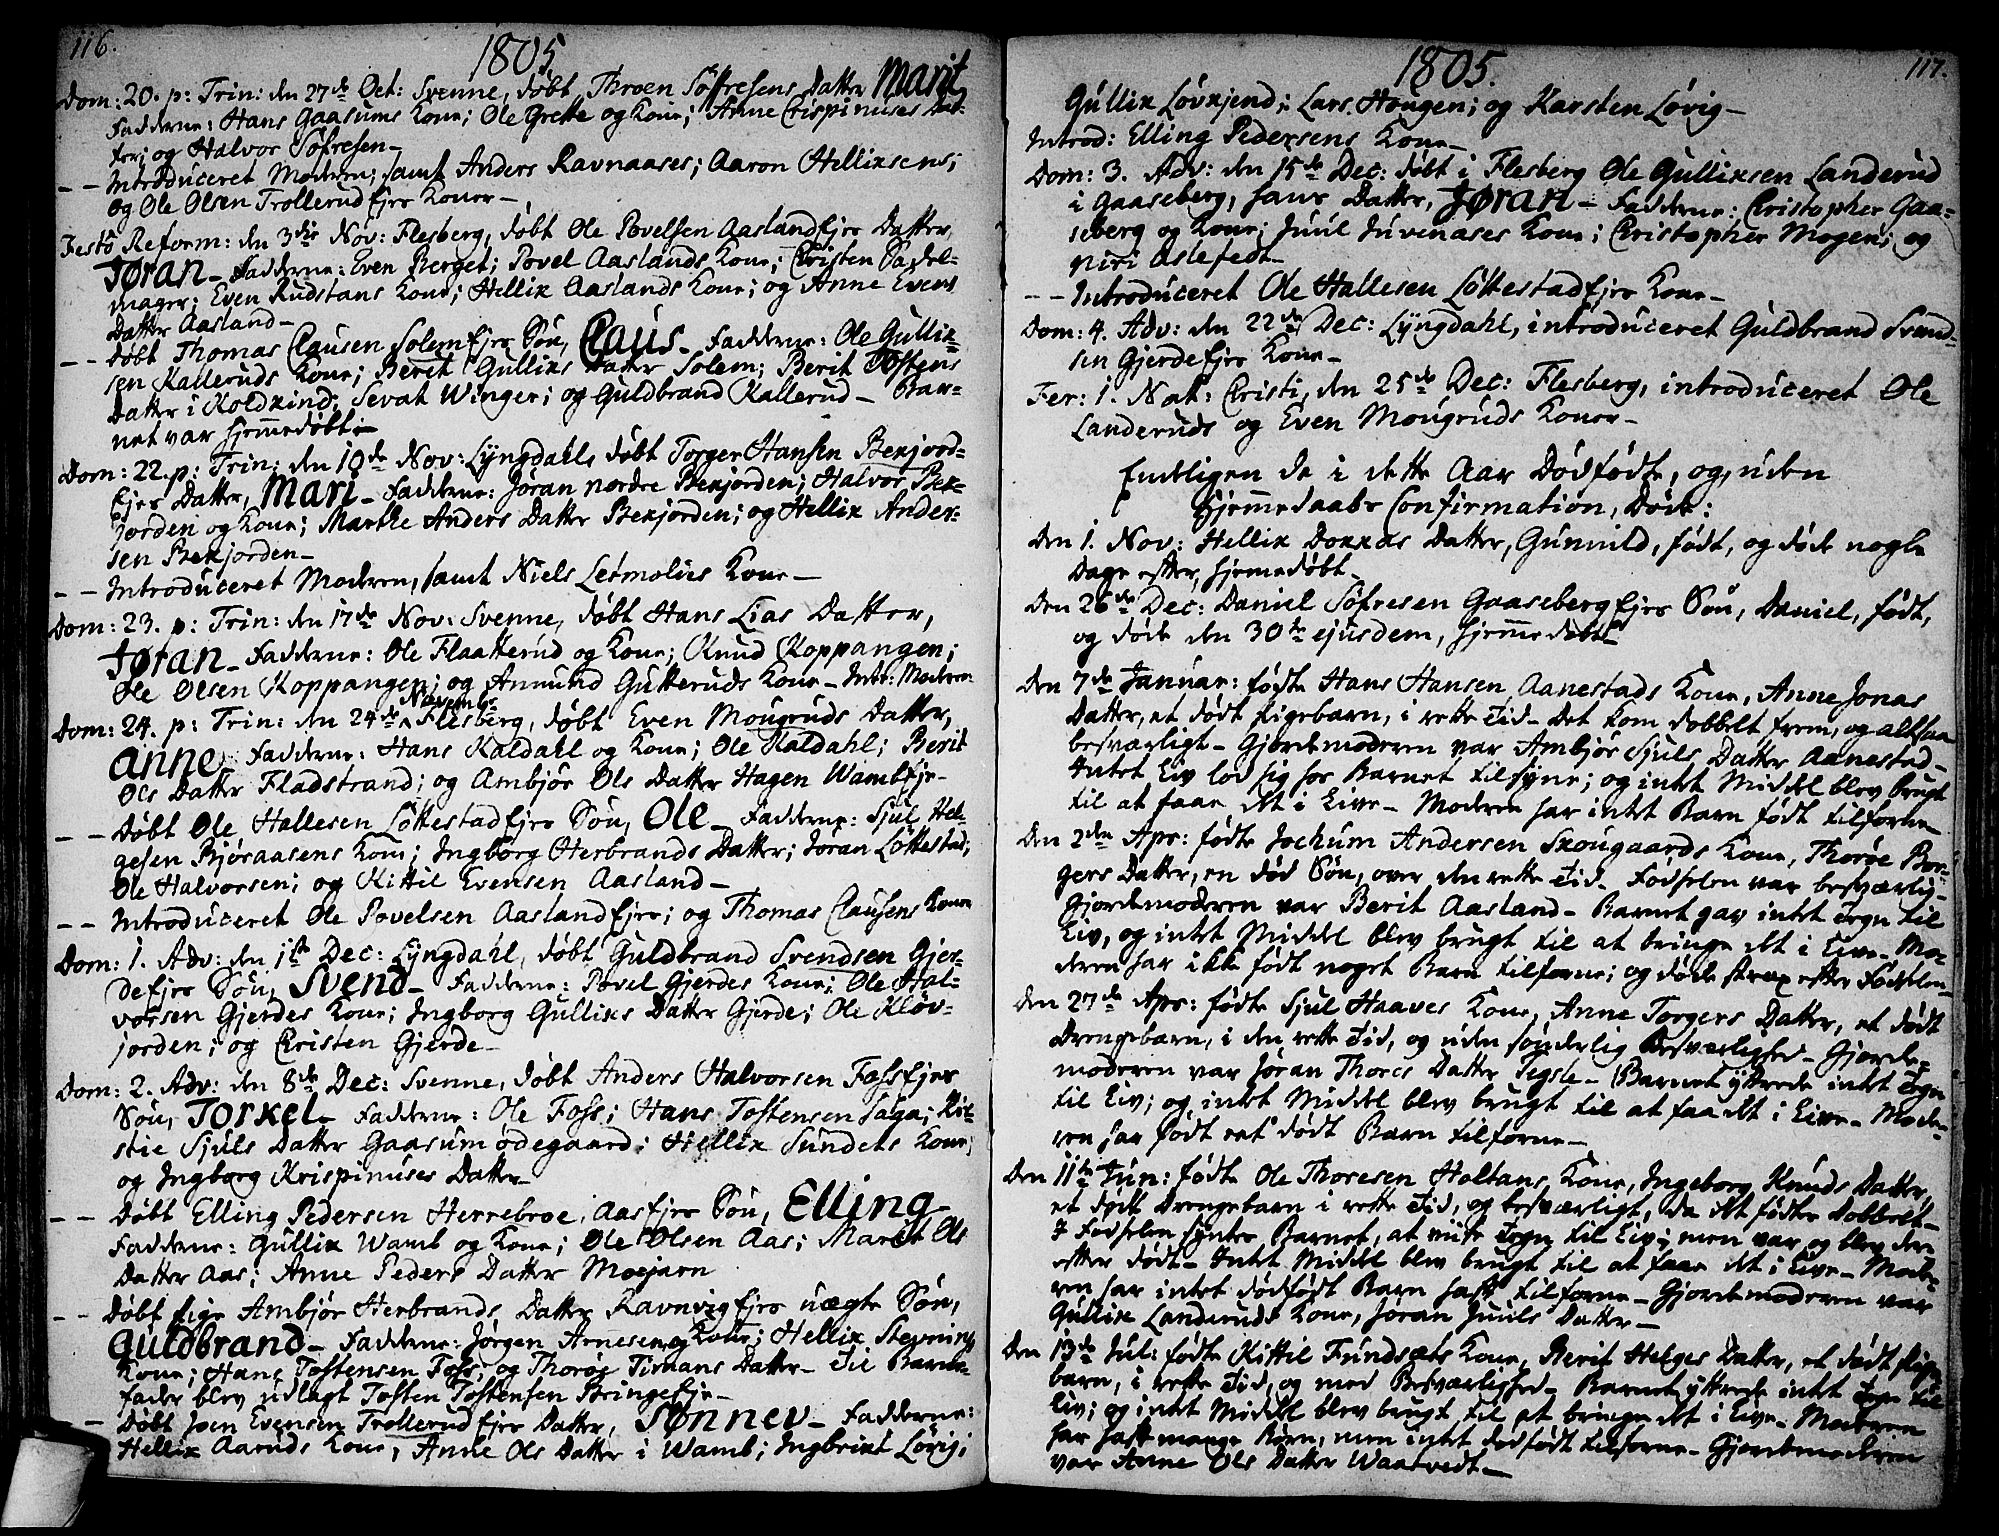 116.
1805
Dom: 20. p: Trin: den 27de Oct: Svenne, døbt Throen Søfresens Datter Marit
Fadderne: Hans Gaasums Kone; Ole Grette og Kone; Anne Crispinuses Dat-
ter; og Halvor Søfresen-
-- Introduceret Moderen; samt Anders Ravnaases; Aaron Helliksens;
og Ole Olsen Trollerud Ejes Koner-
Festo Reform: den 3die Nov: Flesberg, døbt Ole Povelsen Aasland Ejes Datter,
Jøran- Fadderne: Even Berget; Povel Aaslands Kone; Christen Sadel-
mager; Even Rudstans Kone; Hellik Aaslands Kone; og Anne Evens
Datter Aasland-
-- Døbt Thomas Clausen Solem Ejes Søn, Claus- Fadderne: Ole Gullik-
sen Kalleruds Kone; Berit Gulliks Datter Solem; Berit Tostens
Datter i Koldkind; Sevat Winger; og Guldbrand Kallerud- Bar-
net var hjemmedøbt-
Dom: 22. p: Trin: den 10de Nov: Lyngdahls døbt Torger Hansen Bekjord-
Ejes Datter, Mari- Fadderne: Jøran nordre Bekjorden; Halvor Bek-
jorden og Kone; Marthe Anders Datter Bekjorden; og Hellik Ander-
sen Bekjorden-
-- Introduceret Moderen, samt Niels Lesmolies Kone-
Dom: 23. p: Trin: den 17de Nov: Svenne, døbt Hans Lias Datter,
Jøran- Fadderne: Ole Flaatterud og Kone; Knud Koppangen;
Ole Olsen Koppangen; og Amund Gutteruds Kone- Intr: Moderen
Novemb:
Dom: 24. p: Trin: den 24de Flesberg, døbt Even Mougruds Datter,
Anne- Fadderne: Hans Kaldahl og Kone; Ole Kaldahl; Berit
Ols Datter Fladstrand; og Ambjør Ols Datter Hagen Wamb Eje-
-- Døbt Ole Hallesen Løttestad Ejes Søn, Ole- Fadderne: Sjul Hel-
gesen Bjøraasens Kone; Ingborg Herbrands Datter; Jøran Løttestad;
Ole Halvorsen; og Kittil Evensen Aasland-
-- Introduceret Ole Povelsen Aasland Ejes; og Thomas Clausens Koner
Dom: 1. Adv: den 1ste Dec: Lyngdahl, døbt Guldbrand Svendsen Gjer-
de Ejes Søn, Svend- Fadderne: Povel Gjerdes Kone; Ole Hal-
vorsen Gjerdes Kone; Ingborg Gulliks Datter Gjerde; Ole Kløv-
jorden; og Christen Gjerde-
Dom: 2. Adv: den 8de Dec: Svenne, døbt Anders Halvorsen Foss Ejes
Søn, Torkel- Fadderne: Ole Foss; Hans Tostensen Saga; Kir-
stie Sjuls Datter Gaasumødegaard; Hellik Sundets Kone;
og Ingborg Krispinuses Datter
-- Døbt Elling Pedersen Herrebroe, Aas Ejes Søn, Elling-
Fadderne: Gullik Wamb og Kone; Ole Olsen Aas; Marit Ols
Datter Aas; Anne Peders Datter Moejarn
-- Døbt Pige Ambjør Herbrands Datter Ravnvig Ejes uægte Søn,
Guldbrand- Fadderne: Jørgen Arnesen og Kone; Hellik Stevnings
Kone; Hans Tostensen Foss; og Thoroe Timans Datter- Til Barne-
fader blev udlagt Tosten Tostensen Bringe Eje-
- Døbt Joen Evensen Trollerud Ejes Datter, Sønnev- Fadderne:
Hellik Aaruds Kone, Anne Ols Datter i Wamb; Ingbrikt Løvig;
1805.
117.
Gullik Løvkjend; Lars Hougen; og Karsten Løvig-
Introd: Elling Pedersens Kone-
Dom: 3. Adv: den 15de Dec: døbt i Flesberg Ole Gulliksen Landerud
i Gaaseberg, hans Datter, Jøran- Fadderne: Christopher Gaa-
seberg og Kone; Juul Juvenases Kone; Christopher Mogen; og
Niri Aslefedt-
-- Introduceret Ole Hallesen Løttestad Ejes Kone-
Dom: 4. Adv: den 22de Dec: Lyngdahl, introduceret Guldbrand Svend-
sen Gjerde Ejes Kone-
Fer: 1. Nat: Christi, den 25de Dec: Flesberg, introduceret Ole
Landeruds og Even Mougruds Koner-
Endeligen de i dette Aar Dødfødte, og, uden
Hjemmedaabs Confirmation, Døde:
Den 1. Nov: Hellik Dokkas Datter, Gunnild, født, og døde nogle
Dage efter, hjemmedøbt-
Den 26de Dec: Daniel Søfresen Gaaseberg Ejes Søn, Daniel, født,
og døde den 30te ejusdem, hjemmedøbt
Den 7de Januar: fødte Hans Hansen Aanestads Kone, Anne Jonas
Datter, et dødt Pigebarn, i rette Tid- Det kom dobbelt frem, og altsaa
besværligt- Gjordemoderen var Ambjør Sjuls Datter Aanestad-
Intet Liv lod sig hos Barnet tilsyne; og intet Middel blev brugt
til at faae det i Live- Moderen har intet Barn født tilforne-
Den 2den Apr: fødte Jochum Andersen Skougaards Kone, Thoroe Bor-
gers Datter, en død Søn, over den rette Tid- Fødselen var besværlig-
Gjordemoderen var Berit Aasland- Barnet gav intet Tegn til
Liv, og intet Middel blev brugt til at bringe det i Live- Mo-
deren har ikke født noget Barn tilforne; og døde strax efter Fødselen-
Den 27de Apr: fødte Sjul Haaves Kone, Anne Torgers Datter, et dødt
Drengebarn, i den rette Tid, og uden sønderlig Besværlighed- Gjorde-
moderen var Jøran Thores Datter Tegsle- Barnet yttrede intet Tegn
til Liv; og intet Middel blev brugt til at faa det i Live- Mode-
ren har født eet dødt Barn tilforne-
Den 11te Jun: fødte Ole Thoresen Haltans Kone, Ingeborg Knuds Datter,
et dødt Drengebarn i rette Tid, og besværligt, da det fødtes dobbelt-
I Fødselen syntes Barnet, at viise Tegn til Liv; men var og blev der-
efter dødt- Intet Middel blev brugt til at faae det i Live- Mode-
ren har intet dødfødt Barn haft tilforne- Gjordemoderen var
Gullik Landeruds Kone, Jøran Juuls Datter-
Den 13de Jul: fødte Kittil Fundsæts Kone, Berit Helges Datter, et dødt Pige-
barn, i rette Tid, og med Besværlighed- Barnet yttrede intet Tegn til
Liv; og intet Middel blev brugt til at bringe det i Live- Moderen
har haft mange Børn, men intet dødfødt tilforne- Gjordemoderen
var Anne Ols Datter Waatvedt-